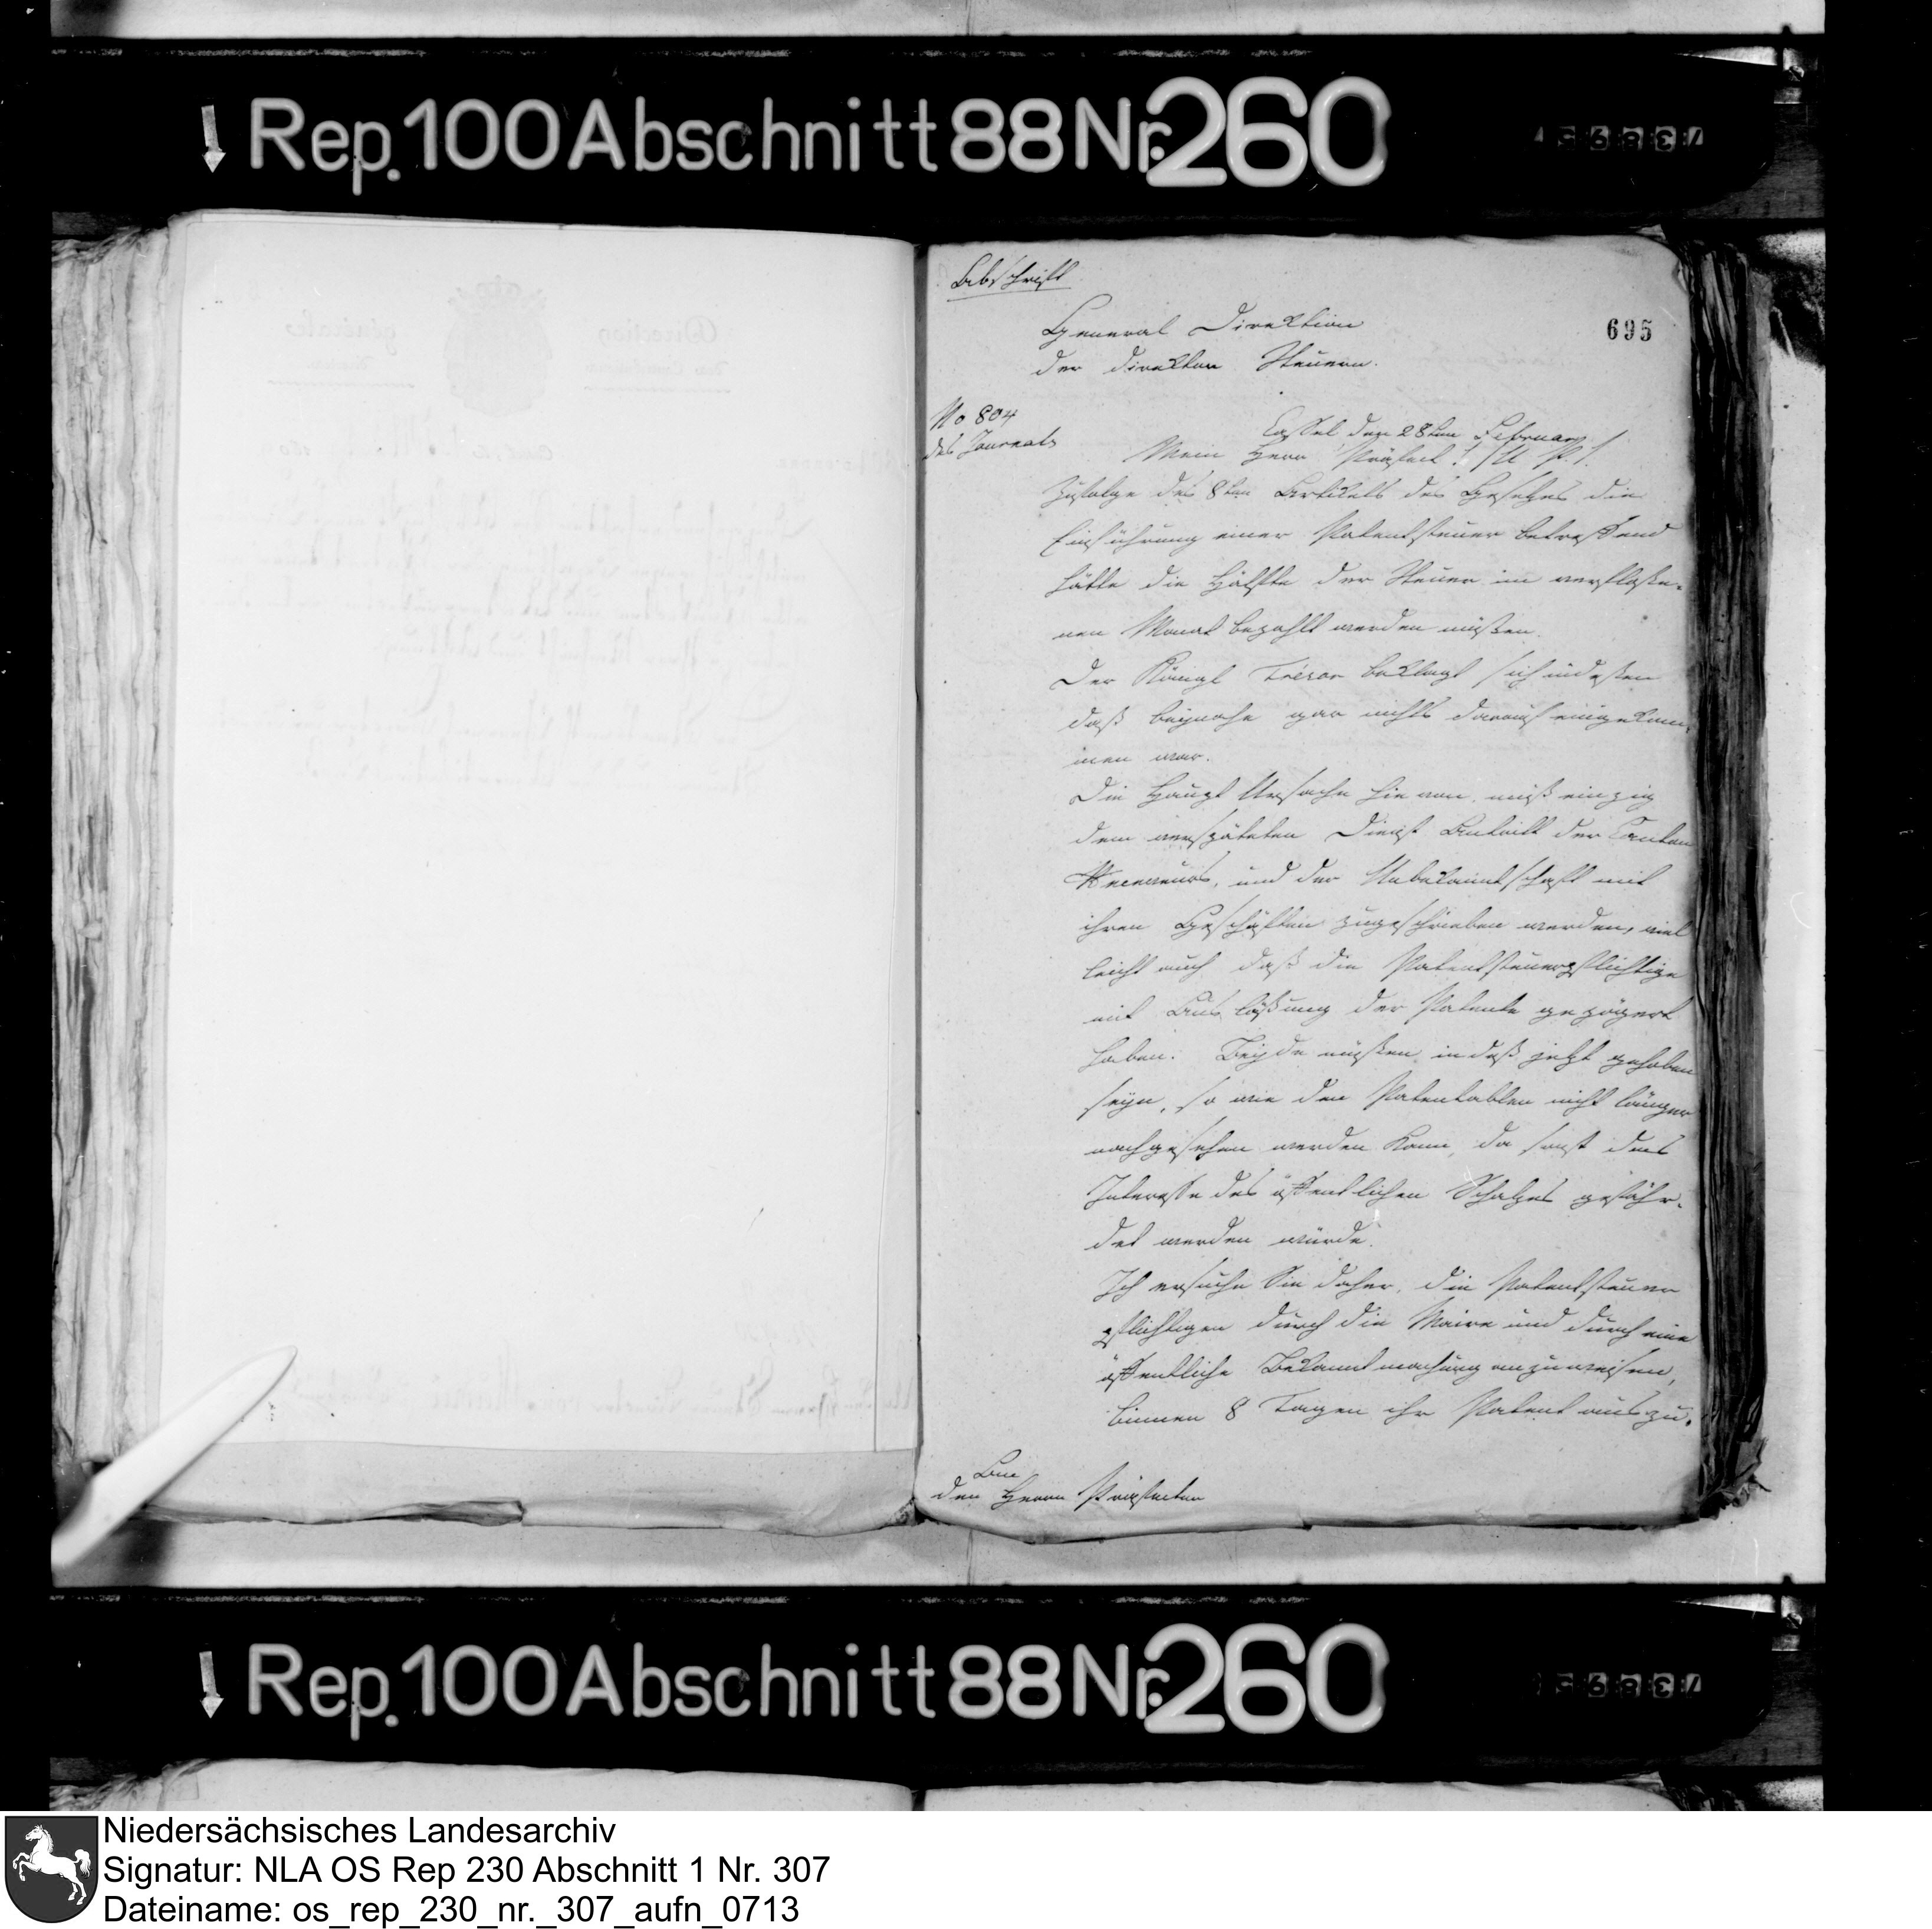 Rep. 100 Abschnitt 88 Nr. 260
Abschrift
695
General Direktion
der direkten Steuern.
No 804
des Journals
Cassel den 28ten Februar
Mein Herr Präfect!
Zufolge des 8ten Artikels des Gesetzes die
Einführung einer Patentsteuer betreffend
hätte die Hälfte der Steuer im verfloße-
nen Monat bezahlt werden müßen.
Der Königl Trésor beklagt sich indeßen
daß beynahe gar nichts darauf eingekom-
men war.
Die Haupt Ursache hievon, muß einzig
dem verspäteten Dienst Antritt der Canton
Receveurs, und der Unbekanntschaft mit
ihren Geschäften zugeschrieben werden, viel
leicht auch daß die Patentsteuerpflichtige
mit Auslößung der Patente gezögert
haben. Beyde müßen indeß jetzt gehoben
seyn, so wie den Patentablen nicht länger
nachgesehen werden kann, da sonst das
Interesse des öffentlichen Schatzes gefähr-
det werden würde.
Ich ersuche Sie daher, die Patentsteuer
pflichtigen durch die Maire und durch eine
öffentliche Bekanntmachung anzuweisen,
binnen 8 Tagen ihr Patent auszu-
An
den Herrn Präfecten
Rep. 100 Abschnitt 88 Nr. 260
Niedersächsisches Landesarchiv
Signatur: NLA OS Rep 230 Abschnitt 1 Nr. 307
Dateiname: os_rep_230_nr._307_aufn_0713